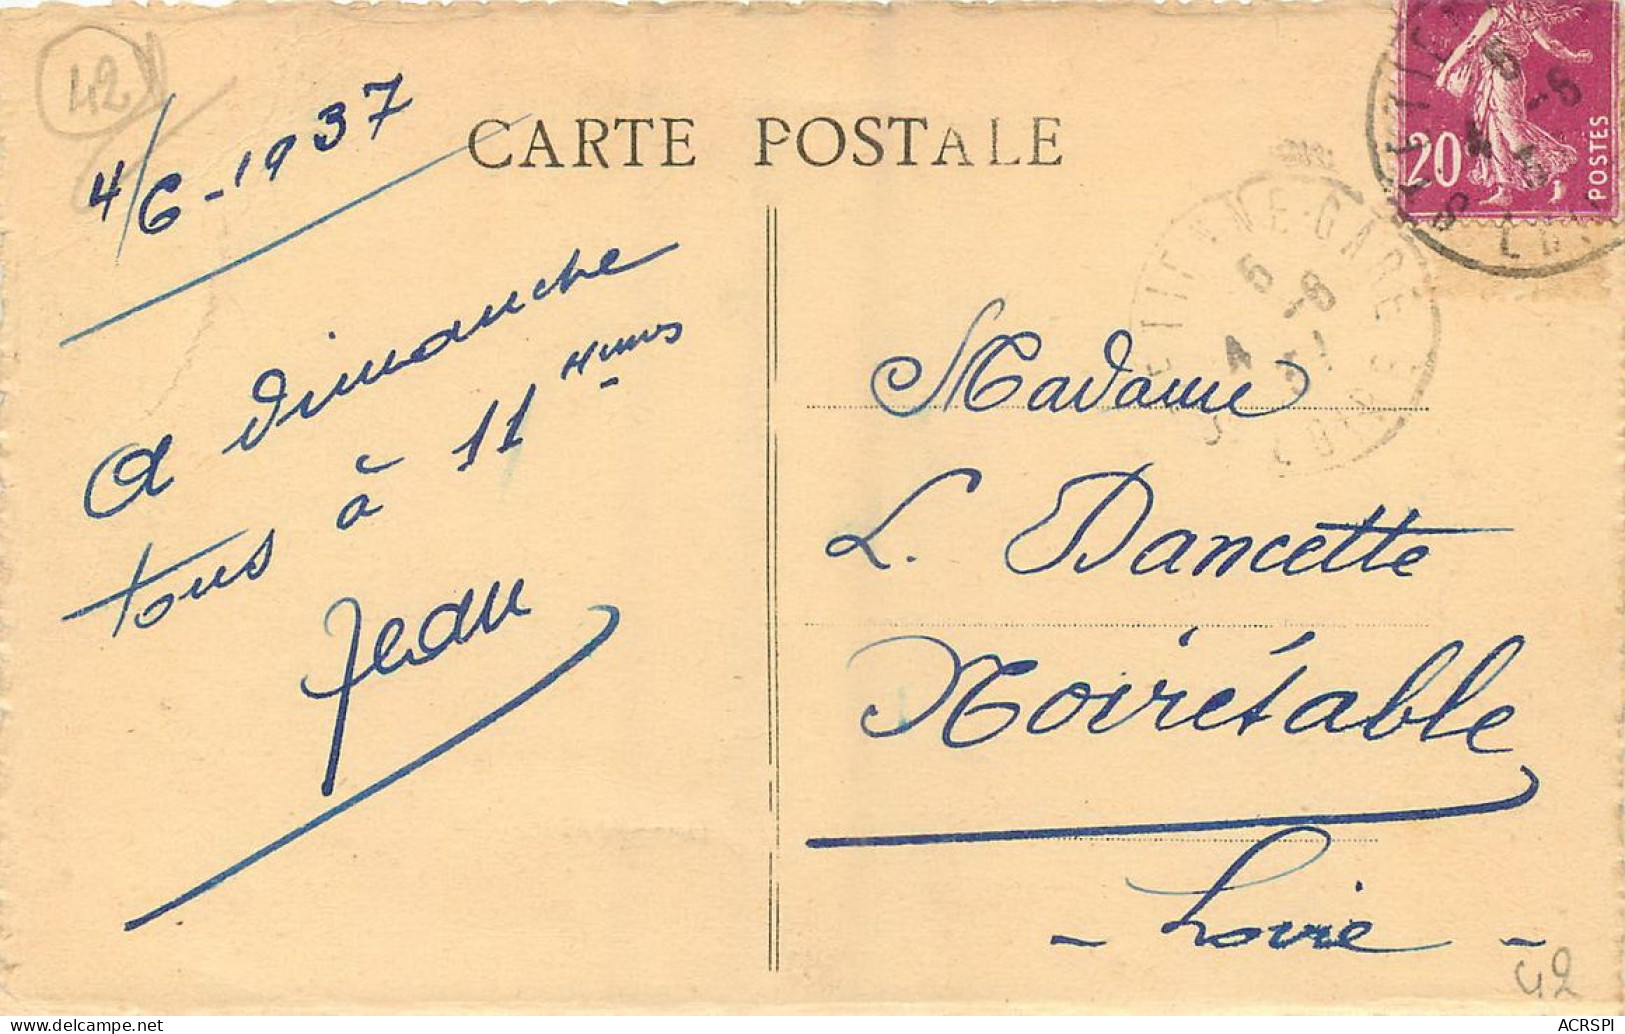 42
4/6-1937
CARTE POSTALE
20
POSTES
ETIENNE-GARE
5 -8
4
LOIRE
A Dimanche
tous à 11 heures
Jean
Madame
L. Dancette
Noirétable
- Loire -
42
delcampe.net
ACRSPI